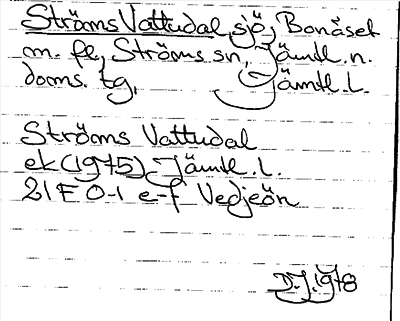 Ströms Vattudal, sjö, Bonäset
m. fl., Ströms sn, Jämtl. n.
doms. tg, Jämtl. l.
Ströms Vattudal
ek (1975) Jämtl. l.
21 F 0-1 e-f Vedjeön
D.J. 1978